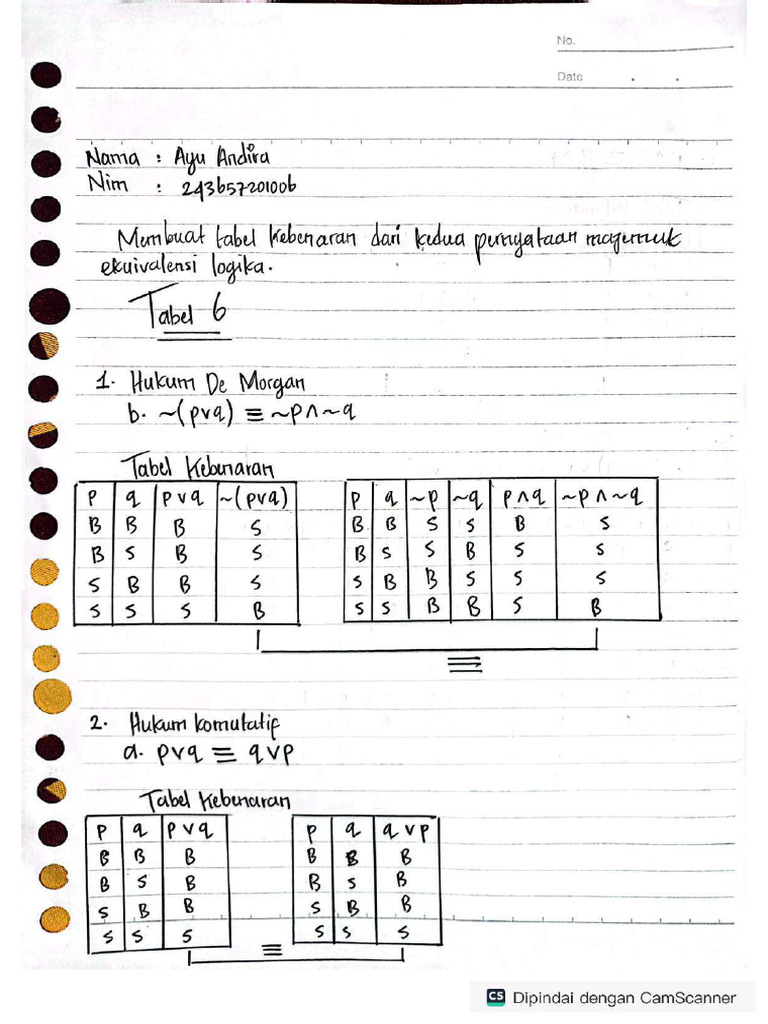 No.
Date
Nama : Ayu Andira
Nim : 243657201006
Membuat tabel Kebenaran dari kedua pernyataan majemuk
ekuivalensi logika.
Tabel 6
1. Hukum De Morgan
b. ~(p∨q) ≡ ~p∧~q
Tabel Kebenaran
p q p∨q ~(p∨q) p q ~p ~q p∧q ~p∧~q
B B B S B B S S B S
B S B S B S S B S S
S B B S S B B S S S
S S S B S S B B S B
≡
2. Hukum komutatif
a. p∨q ≡ q∨p
Tabel Kebenaran
p q p∨q p q q∨p
B B B B B B
B S B B S B
S B B S B B
S S S S S S
≡
CS Dipindai dengan CamScanner